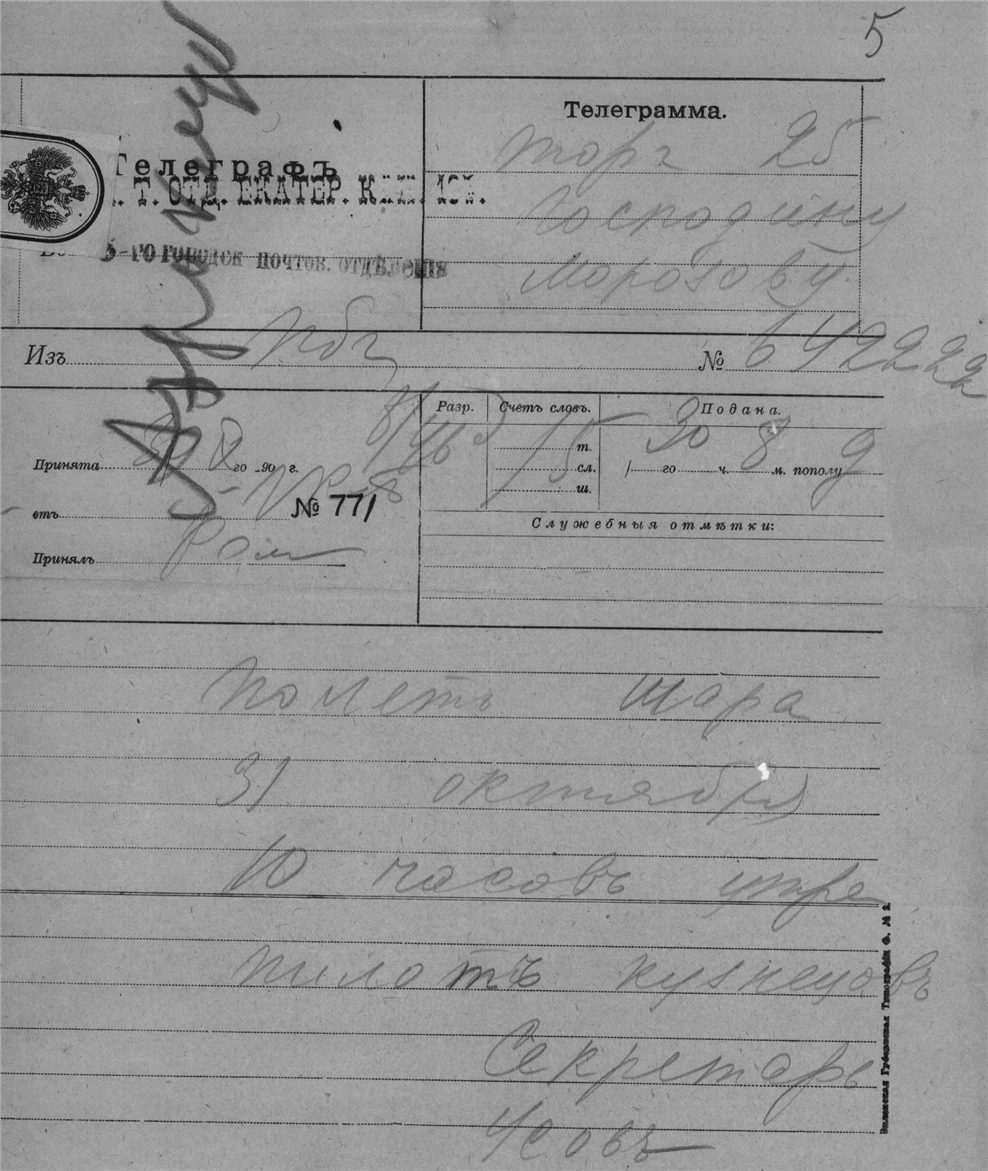 5
Телеграфъ
Т. ОТД. ЕКАТЕР. КАН.
5-ГО ГОРОДСК ПОЧТОВ. ОТДѢЛЕНІЯ
Телеграмма.
Торг 25
Господину
Морозову
Изъ Пбг
№
Принята го 190 г.
отъ № 771
Принялъ Ром
Разр.
Счетъ словъ.
15
т.
сл.
ш.
Подана.
30 го ч. 8 м. пополу 9
Служебныя отмѣтки:
Полетъ шара
31 октября
10 часовъ утра
Пилотъ Кузнецовъ
Секретарь
Виленская Губернская Типографія Ф. № 2.